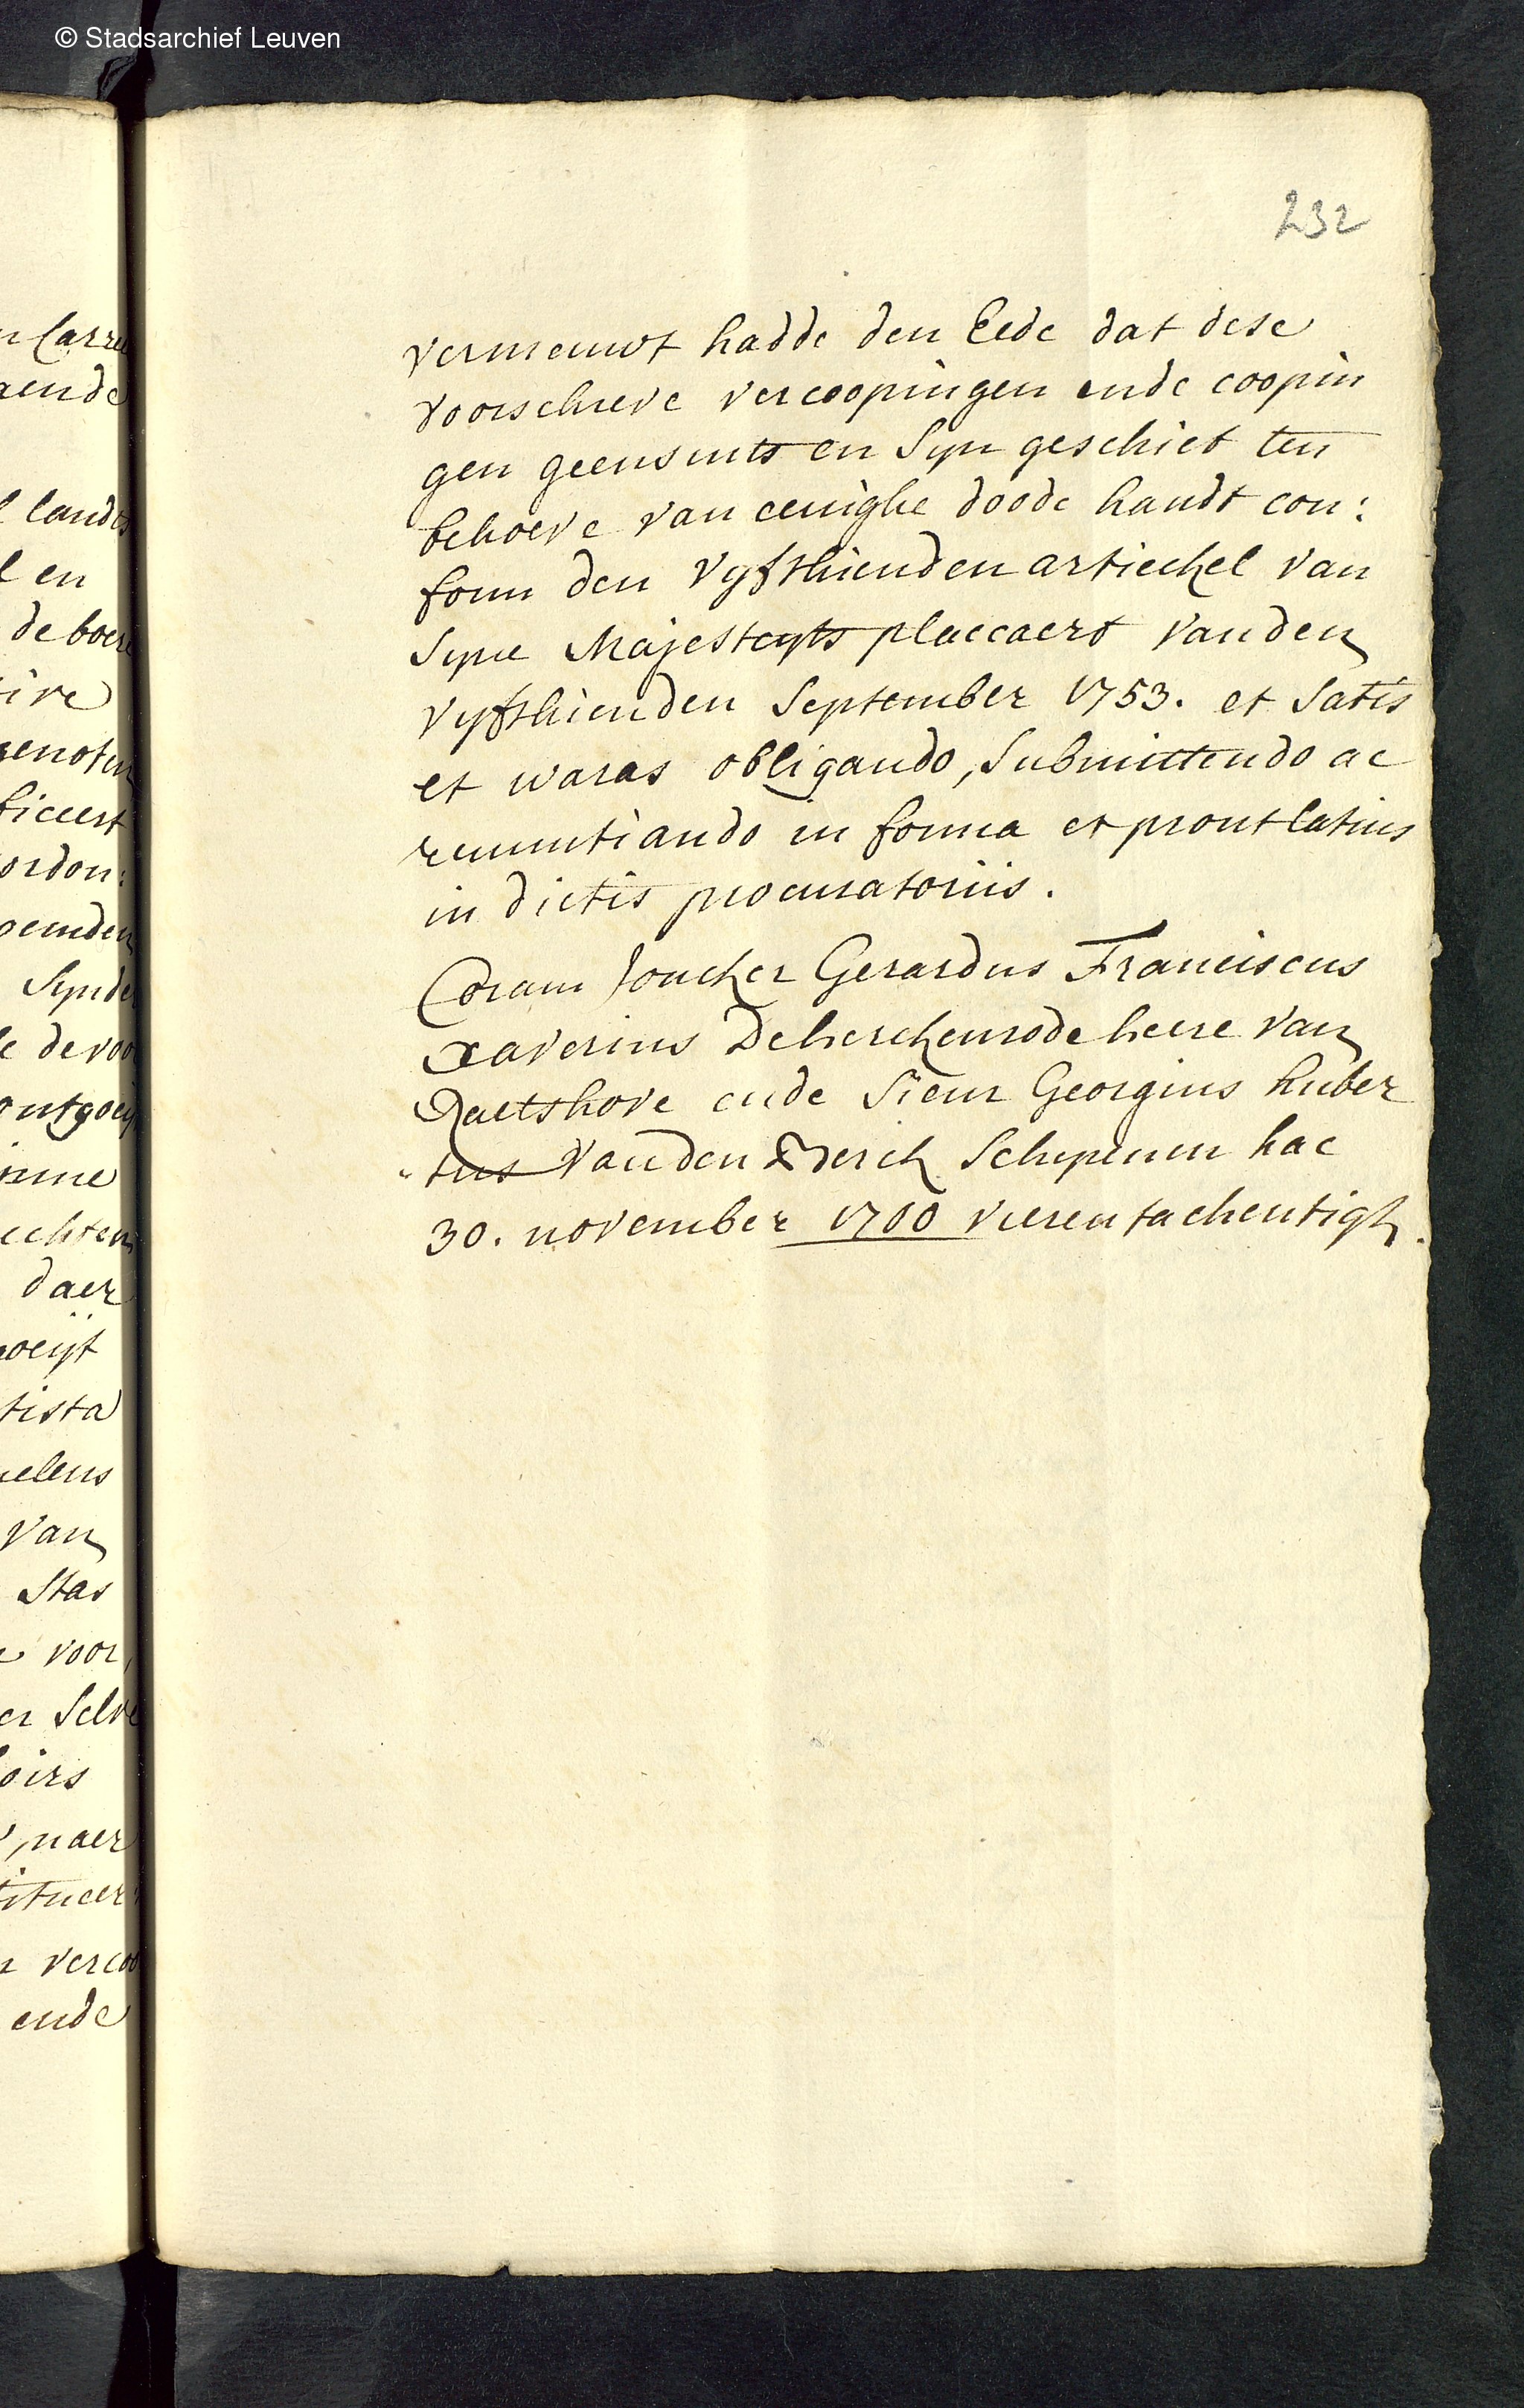 © Stadsarchief Leuven
232
vernieuwt hadde den Eede dat dese
voorschreve vercoopingen ende coopin
gen geensints en Syn geschiet ten
behoeve van eenighe doode handt con:
form den vyfthienden artieckel van
Syne Majesteyts placcaert vanden
vyfthienden September 1753. et Satis
et waras obligando, Submittendo ac
renuntiando in forma et prout latius
in dictis procuratoriis.
Coram Joncker Gerardus Franciscus
Xaverius De herckenrode heere van
Raetshove ende Sieur Georgius huber
tus vanden Berch Schepenen hac
30. november 1700 vierentachentigh.
n Carre
aende
l landts
l en
de boer
ive
genoten
ficeert
ordon:
oemden
Synde
le de voo
ontgoey
inne
echten
daer
goeyt
tista
uelens
van
Stas
voor,
er Selve
oirs
, naer
titueer
n vercoo
ende